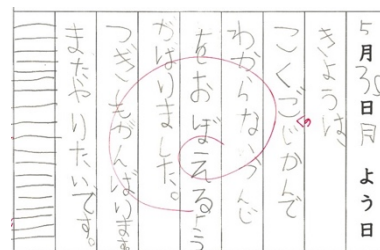 5月35日月よう日
きょうは、
こくごじかんで
わからないかんじ
をおぼえるよう
がばりました。
つぎもかんばります
またやりたいです。